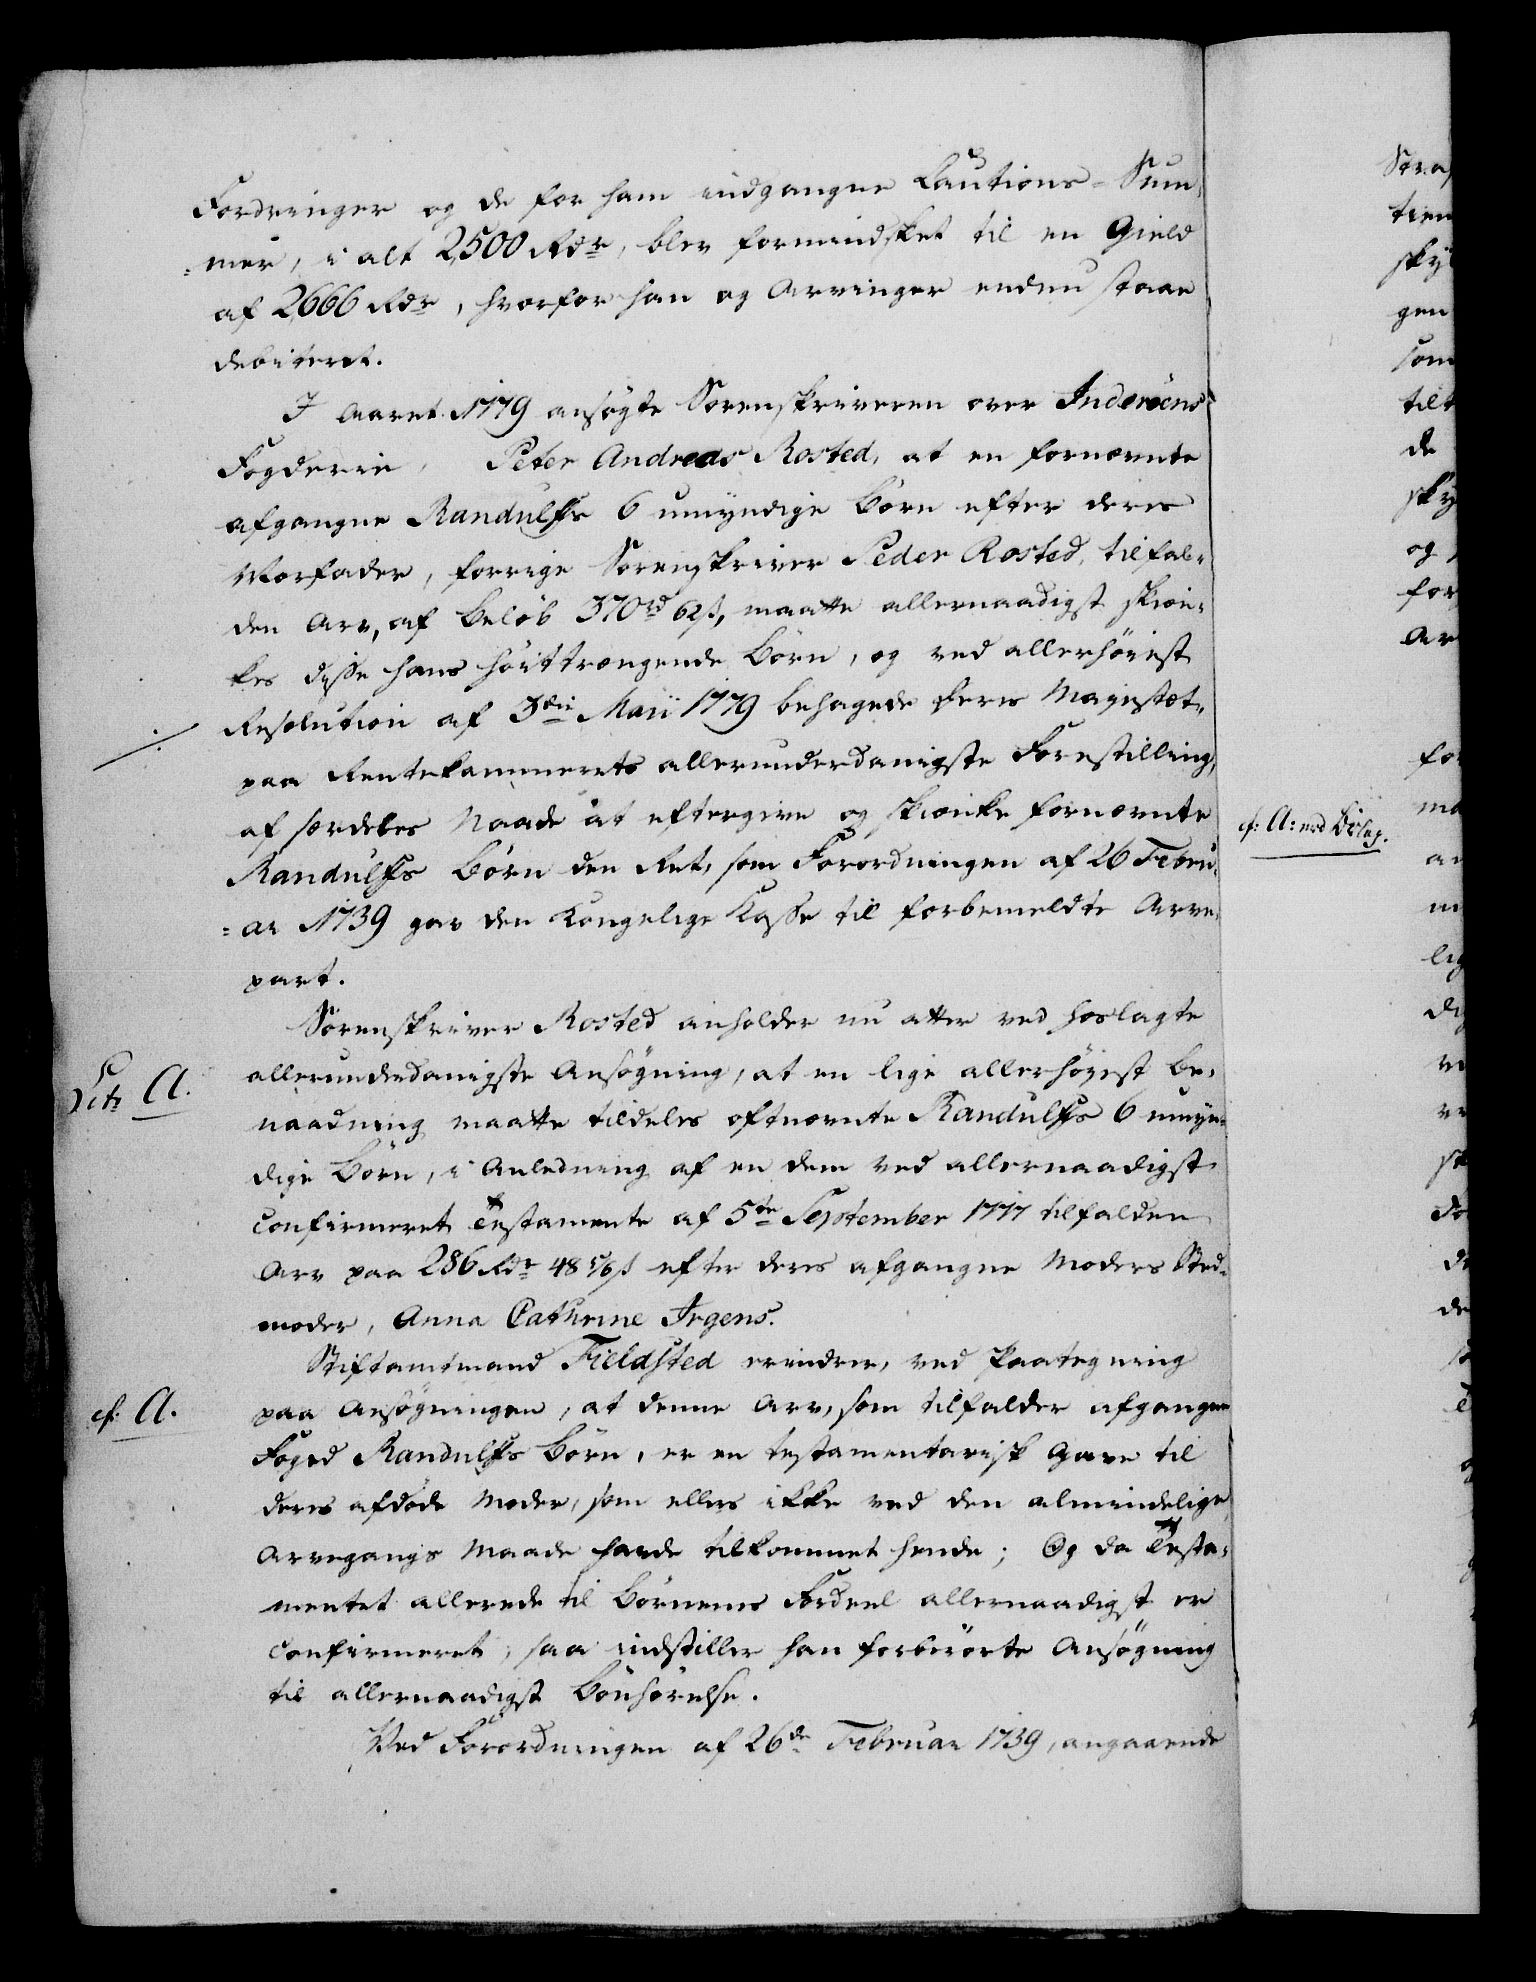 Fordringer og de for ham indgangne Cautions-Sum,
=mer, i alt 2500 Rdr, blev formindsket til en Gield
af 2666 Rdr, hvorfor han og Arvinger endnu staae
debiteret.
I Aaret 1779 ansøgte Sorenskriveren over Inderøens
Fogderie, Peter Andreas Rosted, at en fornævnte
afgangne Randulffs 6 umyndige Børn efter deres
Morfader, forrige Sorenskriver Peder Rosted, tilfal-
den Arv, af Beløb 370 rd 62 s, maatte allernaadigst skien-
kes disse hans høittrængende Børn, og ved allerhøiest
Resolution af 3die Maii 1779 behagede Deres Majestæt,
paa Rentekammerets allerunderdanigste Forestilling,
af særdeles Naade at eftergive og skienke fornævnte
Randulffs Børn den Ret, som Forordningen af 26 Febru-
=ar 1739 gav den Kongelige Kasse til forbemeldte Arve-
part.
Sorenskriver Rosted anholder nu atter ved hoslagte
Litr A.
allerunderdanigste Ansøgning, at en lige allerhøyest Be-
naadning maatte tildeles oftnævnte Randulffs 6 umyn-
dige Børn, i Anledning af en dem ved allernaadigst
confirmeret Testamente af 5te September 1777 tilfalden
Arv paa 286 Rdr 48 5/6 s efter deres afgangne Moders Sted-
moder, Anna Cathrine Irgens.
Stiftamtmand Fieldsted erindrer, ved Paategning
cf: A.
paa Ansøgningen, at denne Arv, som tilfalder afgangne
Foged Randulffs Børn, er en testamentarisk Gave til
deres afdøde Moder, som ellers ikke ved den almindelige
Arvegangs Maade havde tilkommet hende; Og da Testa-
mentet allerede til Børnenes Fordeel allernaadigst er
confirmeret, saa indstiller han forberørte Ansøgning
til allernaadigst Bønhørelse.
Ved Forordningen af 26de Februar 1739, angaaende
cf: A: med Bilag.